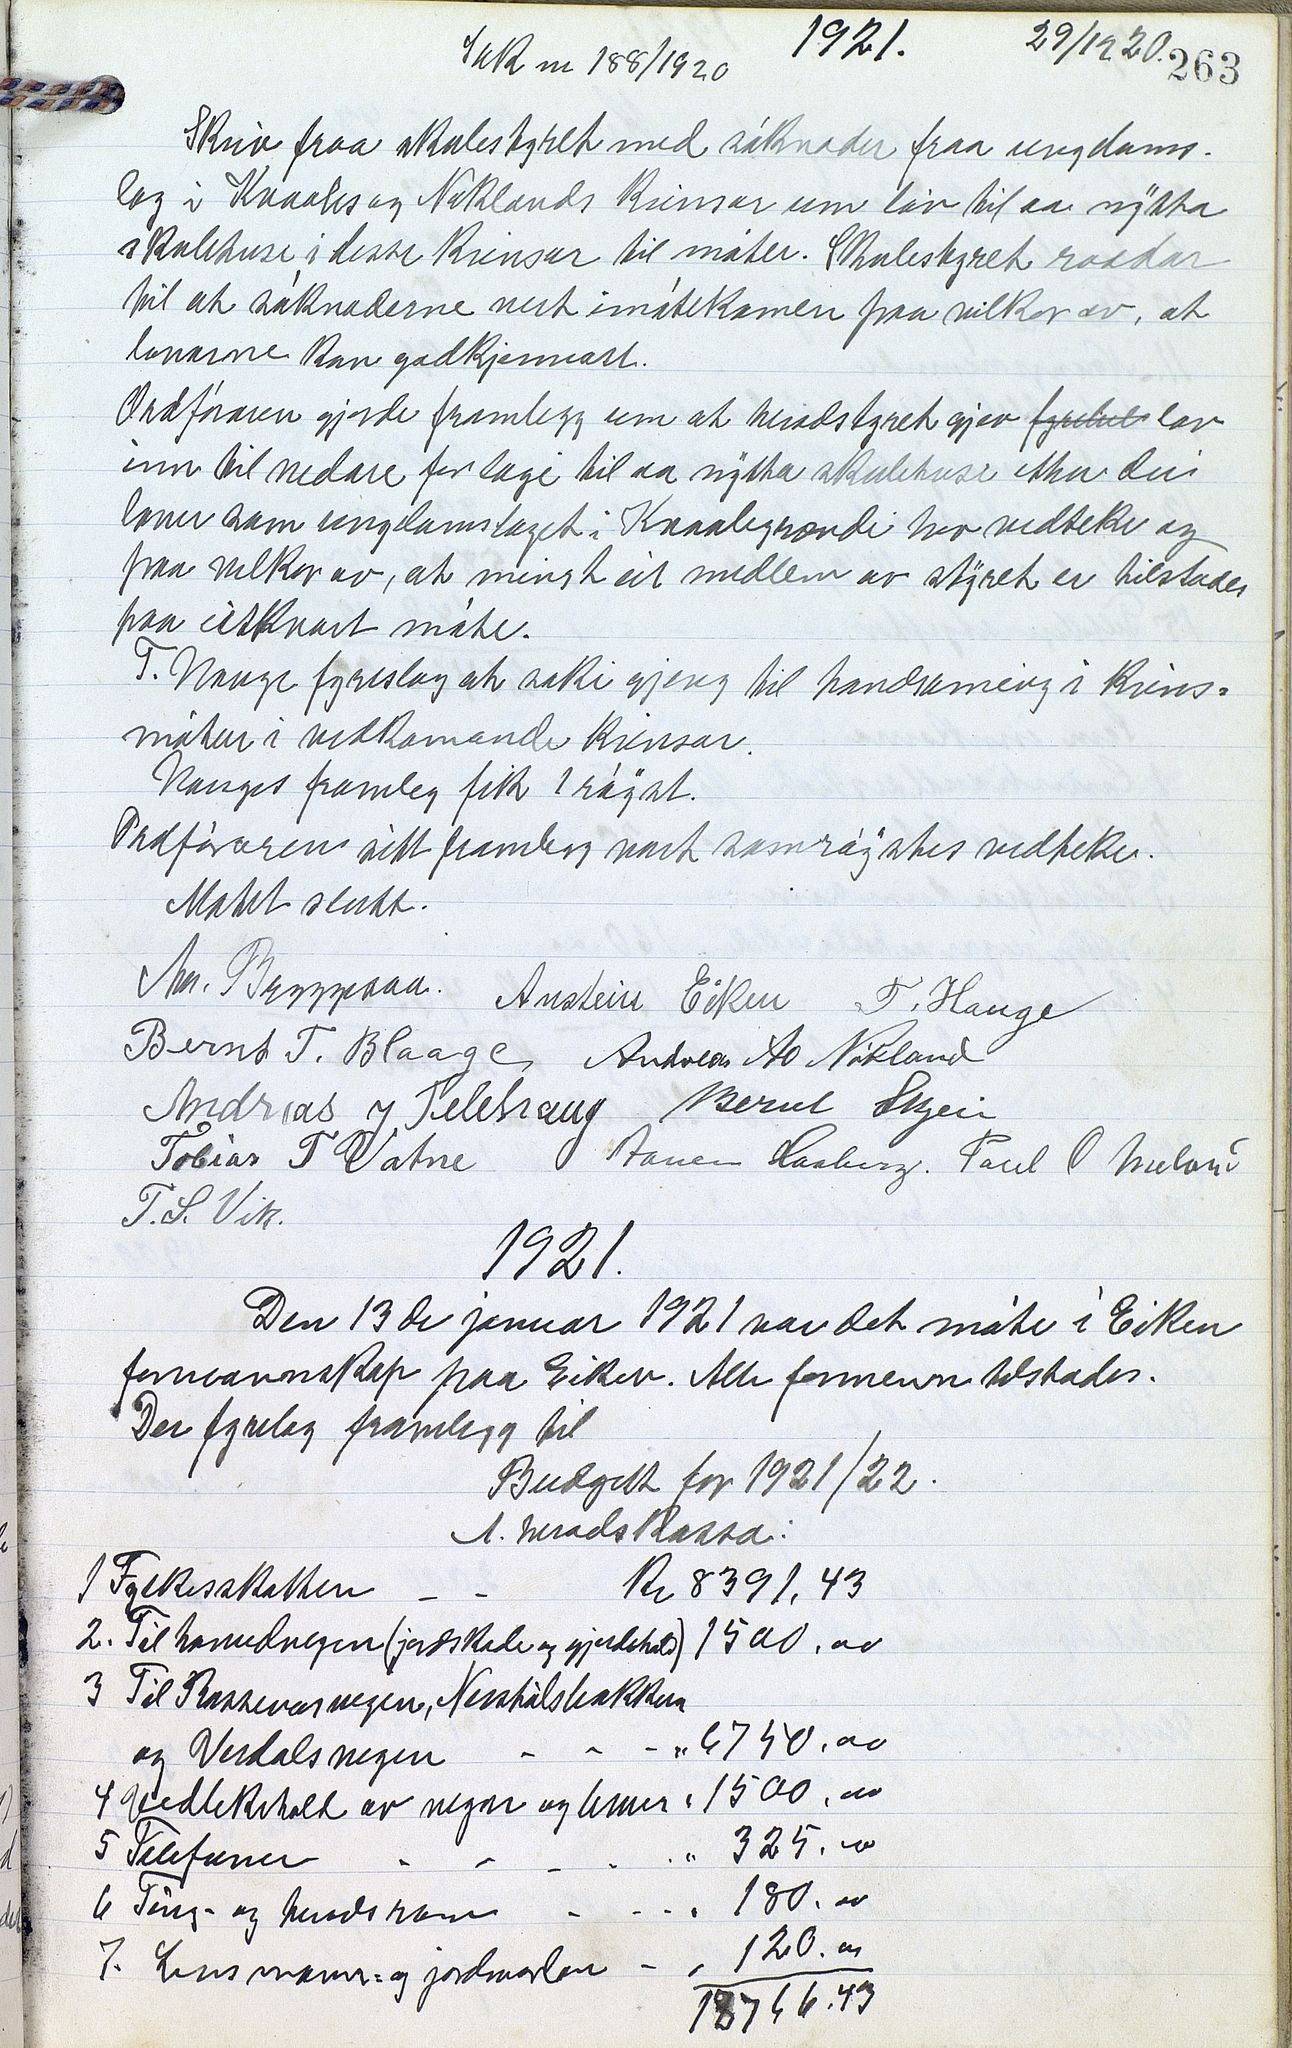 1921. 29/12 20. 263
Sak nr 188/1920
Skriv fraa skulestyret med søknader fraa ungdoms-
lag i Knaabes og Nøklands krinsar um lov til aa nytta
skulehuse i desse krinsar til møter. Skulestyret raadar
til at søknaderne vert imøtekomen paa vilkor av, at
lovarne kan godkjennast.
Ordføraren gjorde framlegg um at heradstyret gjev lov
inn til vedare for lagi til aa nytta skulehuse etter dei
lover som ungdomslaget i Knaabegrændi hev vedteke og
paa vilkor av, at minst eit medlem av styret er tilstades
paa eitkvart møte.
T. Hauge fyreslog at saki gjeng til handsaming i krins-
møter i vedkomande krinsar.
Hauges framleg fik 1 røyst.
Ordføraren sitt framlegg vart samrøystes vedteke.
Møtet slutt.
An. Bryggsaa. Anstein Eiken T. Hauge
Bernt T. Blaage Andreas Ao Nøkland
Andreas J Telehaug Bernt Skjein
Tobias T Vatne Aanen Haaberg. Paul O Meland
T.S. Vik.
1921.
Den 13de januar 1921 var det møte i Eiken
formannskap paa Eiken. Alle formenn tilstades.
Der fyrelog framlegg til
Budgett for 1921/22.
A. heradskassa:
1 Fylkesskatten - - Kr 8391,43
2. Til hovudvegen (jordskade og gjerdehald) 1500.00
3 Til Rossevasvegen, Nesshålsbakken
og Verdalsvegen - - - " 6750.00
4 Vedlikehold av vegar og bruer " 1500.00
5 Telefoner - - - - " 325.00
6 Ting- og heradsrom - - - " 180.00
7. Lensmanns- og jordmorløn - " 120.00
18766.43